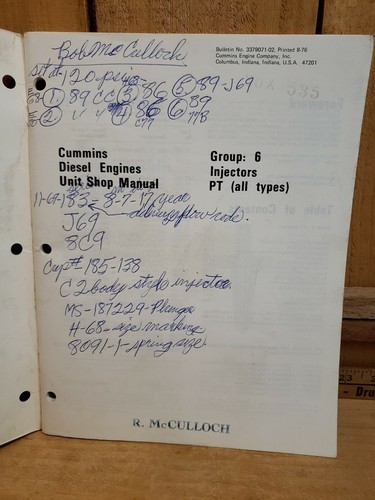 Bob McCulloch
Bulletin No. 3379071-02, Printed 8-76
Cummins Engine Company, Inc.
Columbus, Indiana, Indiana, U.S.A. 47201
set at 120 psi
① 89 CC ③ 86 ⑤ 89-J69
② " " ④ 86 ⑥ 89
C77 77B
Cummins
Diesel Engines
Unit Shop Manual
Group: 6
Injectors
PT (all types)
11-69-183-8-7-17 year
delivery flow code.
J69
8C9
Cup# 185-138
C2 body style injector.
MS-187229-Plunger
H-68-size marking
8091-1-spring size
R. McCULLOCH